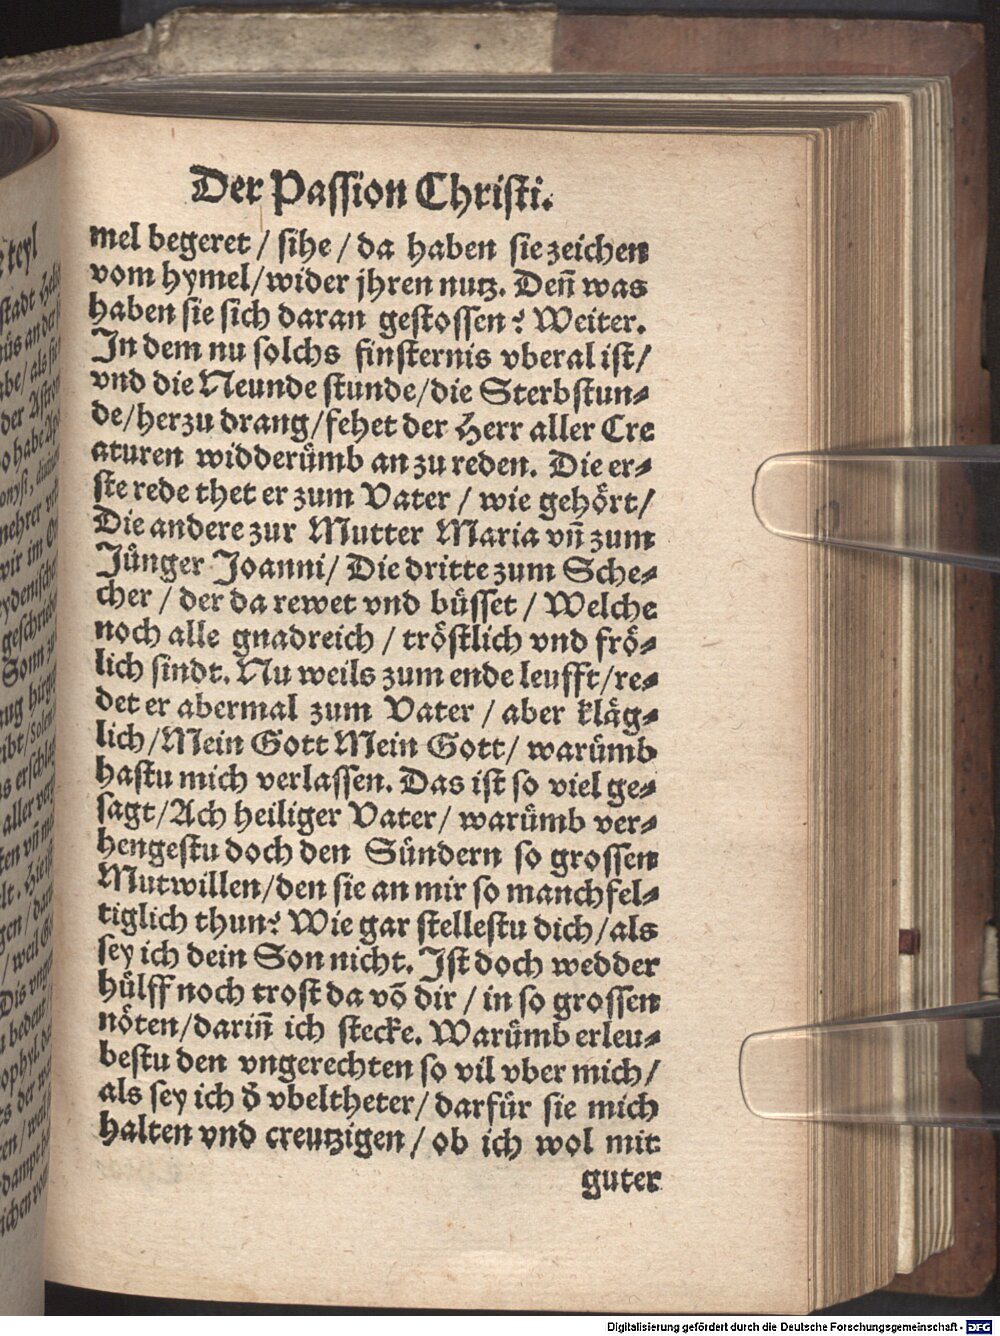 Der Passion Christi.
mel begeret / sihe / da haben sie zeichen
vom hymel / wider jhren nutz. Deñ was
haben sie sich daran gestossen? Weiter.
In dem nu solchs finsternis vberal ist /
vnd die Neunde stunde / die Sterbstun⸗
de / herzu drang / fehet der Herr aller Cre
aturen widderümb an zu reden. Die er⸗
ste rede thet er zum Vater / wie gehört /
Die andere zur Mutter Maria vñ zum
Jünger Joanni / Die dritte zum Sche⸗
cher / der da rewet vnd büsset / Welche
noch alle gnadreich / tröstlich vnd frö⸗
lich sindt. Nu weils zum ende leufft / re⸗
det er abermal zum Vater / aber kläg⸗
lich / Mein Gott Mein Gott / warümb
hastu mich verlassen. Das ist so viel ge⸗
sagt / Ach heiliger Vater / warümb ver⸗
hengestu doch den Sündern so grossen
Mutwillen / den sie an mir so manchfel⸗
tiglich thun? Wie gar stellestu dich / als
sey ich dein Son nicht. Ist doch wedder
hülff noch trost da võ dir / in so grossen
nöten / dariñ ich stecke. Warümb erleu⸗
bestu den vngerechten so vil vber mich /
als sey ich d̕ vbeltheter / darfür sie mich
halten vnd creutzigen / ob ich wol mit
guter
Digitalisierung gefördert durch die Deutsche Forschungsgemeinschaft - DFG